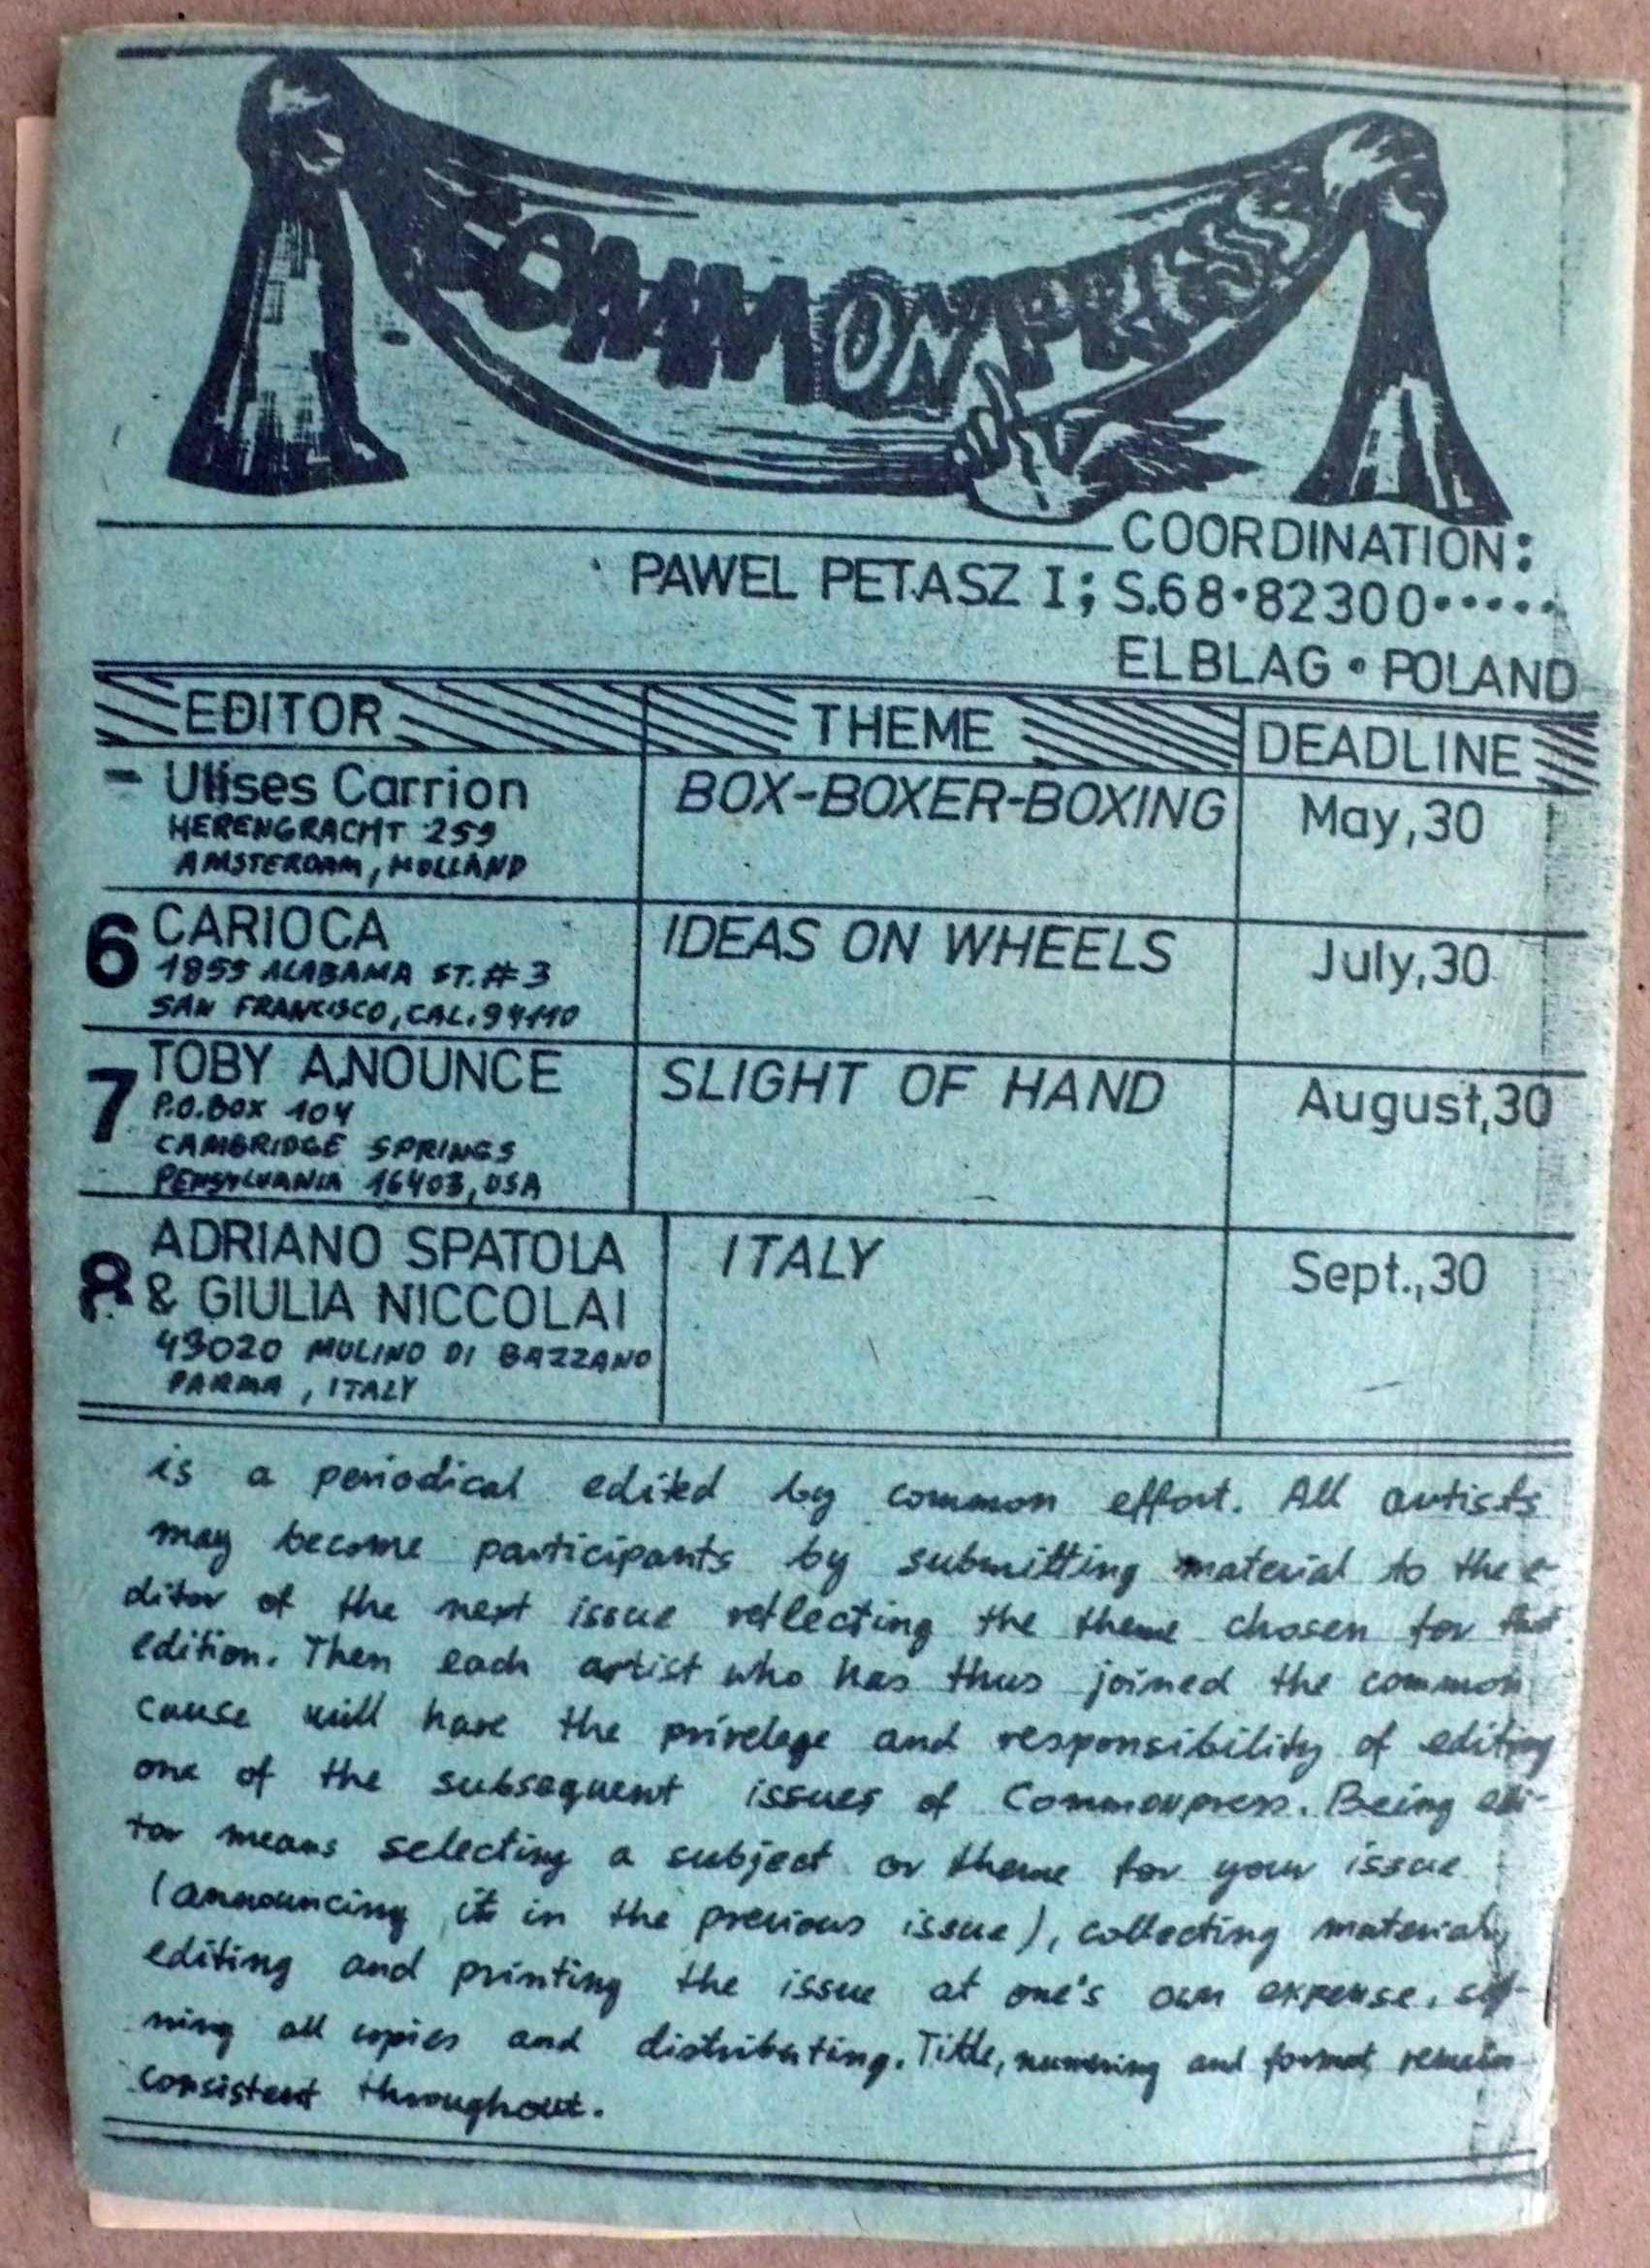 COMMONPRESS
COORDINATION:
PAWEL PETASZ I; S.68•82300•••••
ELBLAG • POLAND
EDITOR THEME DEADLINE
- Ulises Carrion BOX-BOXER-BOXING May,30
HERENGRACHT 259
AMSTERDAM, HOLLAND
6 CARIOCA IDEAS ON WHEELS July,30
1855 ALABAMA ST.#3
SAN FRANCISCO, CAL. 94110
7 TOBY A.NOUNCE SLIGHT OF HAND August,30
P.O.BOX 104
CAMBRIDGE SPRINGS
PENSYLVANIA 16403, USA
8 ADRIANO SPATOLA ITALY Sept.,30
& GIULIA NICCOLAI
43020 MULINO DI BAZZANO
PARMA, ITALY
is a periodical edited by common effort. All artists
may become participants by submitting material to the e-
ditor of the next issue reflecting the theme chosen for that
edition. Then each artist who has thus joined the common
cause will have the privelege and responsibility of editing
one of the subsequent issues of Commonpress. Being edi-
tor means selecting a subject or theme for your issue
(announcing it in the previous issue), collecting materials,
editing and printing the issue at one's own expense, sig-
ning all copies and distributing. Title, numbering and format remain
consistent throughout.